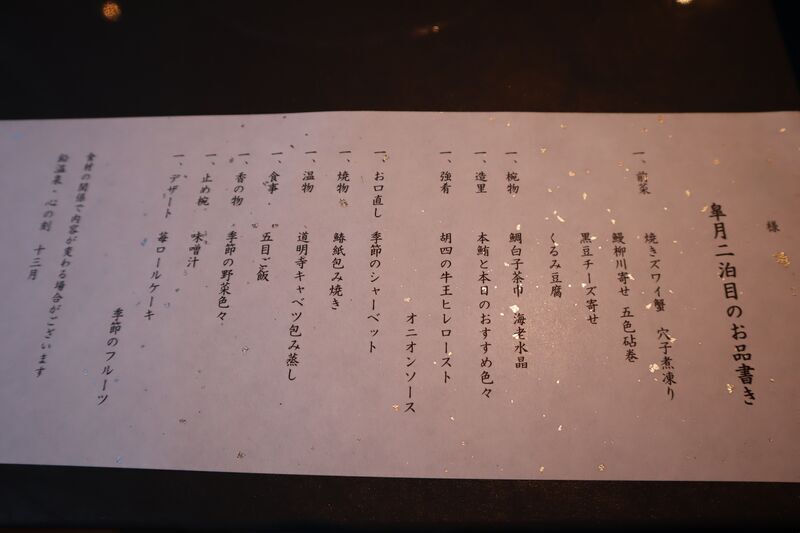 様
皐月二泊目のお品書き
一、前菜 焼きズワイ蟹 穴子煮凍り
鰻柳川寄せ 五色砧巻
黒豆チーズ寄せ
くるみ豆腐
一、椀物 鯛白子茶巾 海老水晶
一、造里 本鮪と本日のおすすめ色々
一、強肴 胡四の牛王ヒレロースト
オニオンソース
一、お口直し 季節のシャーベット
一、焼物 鰆紙包み焼き
一、温物 道明寺キャベツ包み蒸し
一、食事 五目ご飯
一、香の物 季節の野菜色々
一、止め椀 味噌汁
一、デザート 苺ロールケーキ
季節のフルーツ
食材の関係で内容が変わる場合がございます
鄙温泉・心の刻 十三月